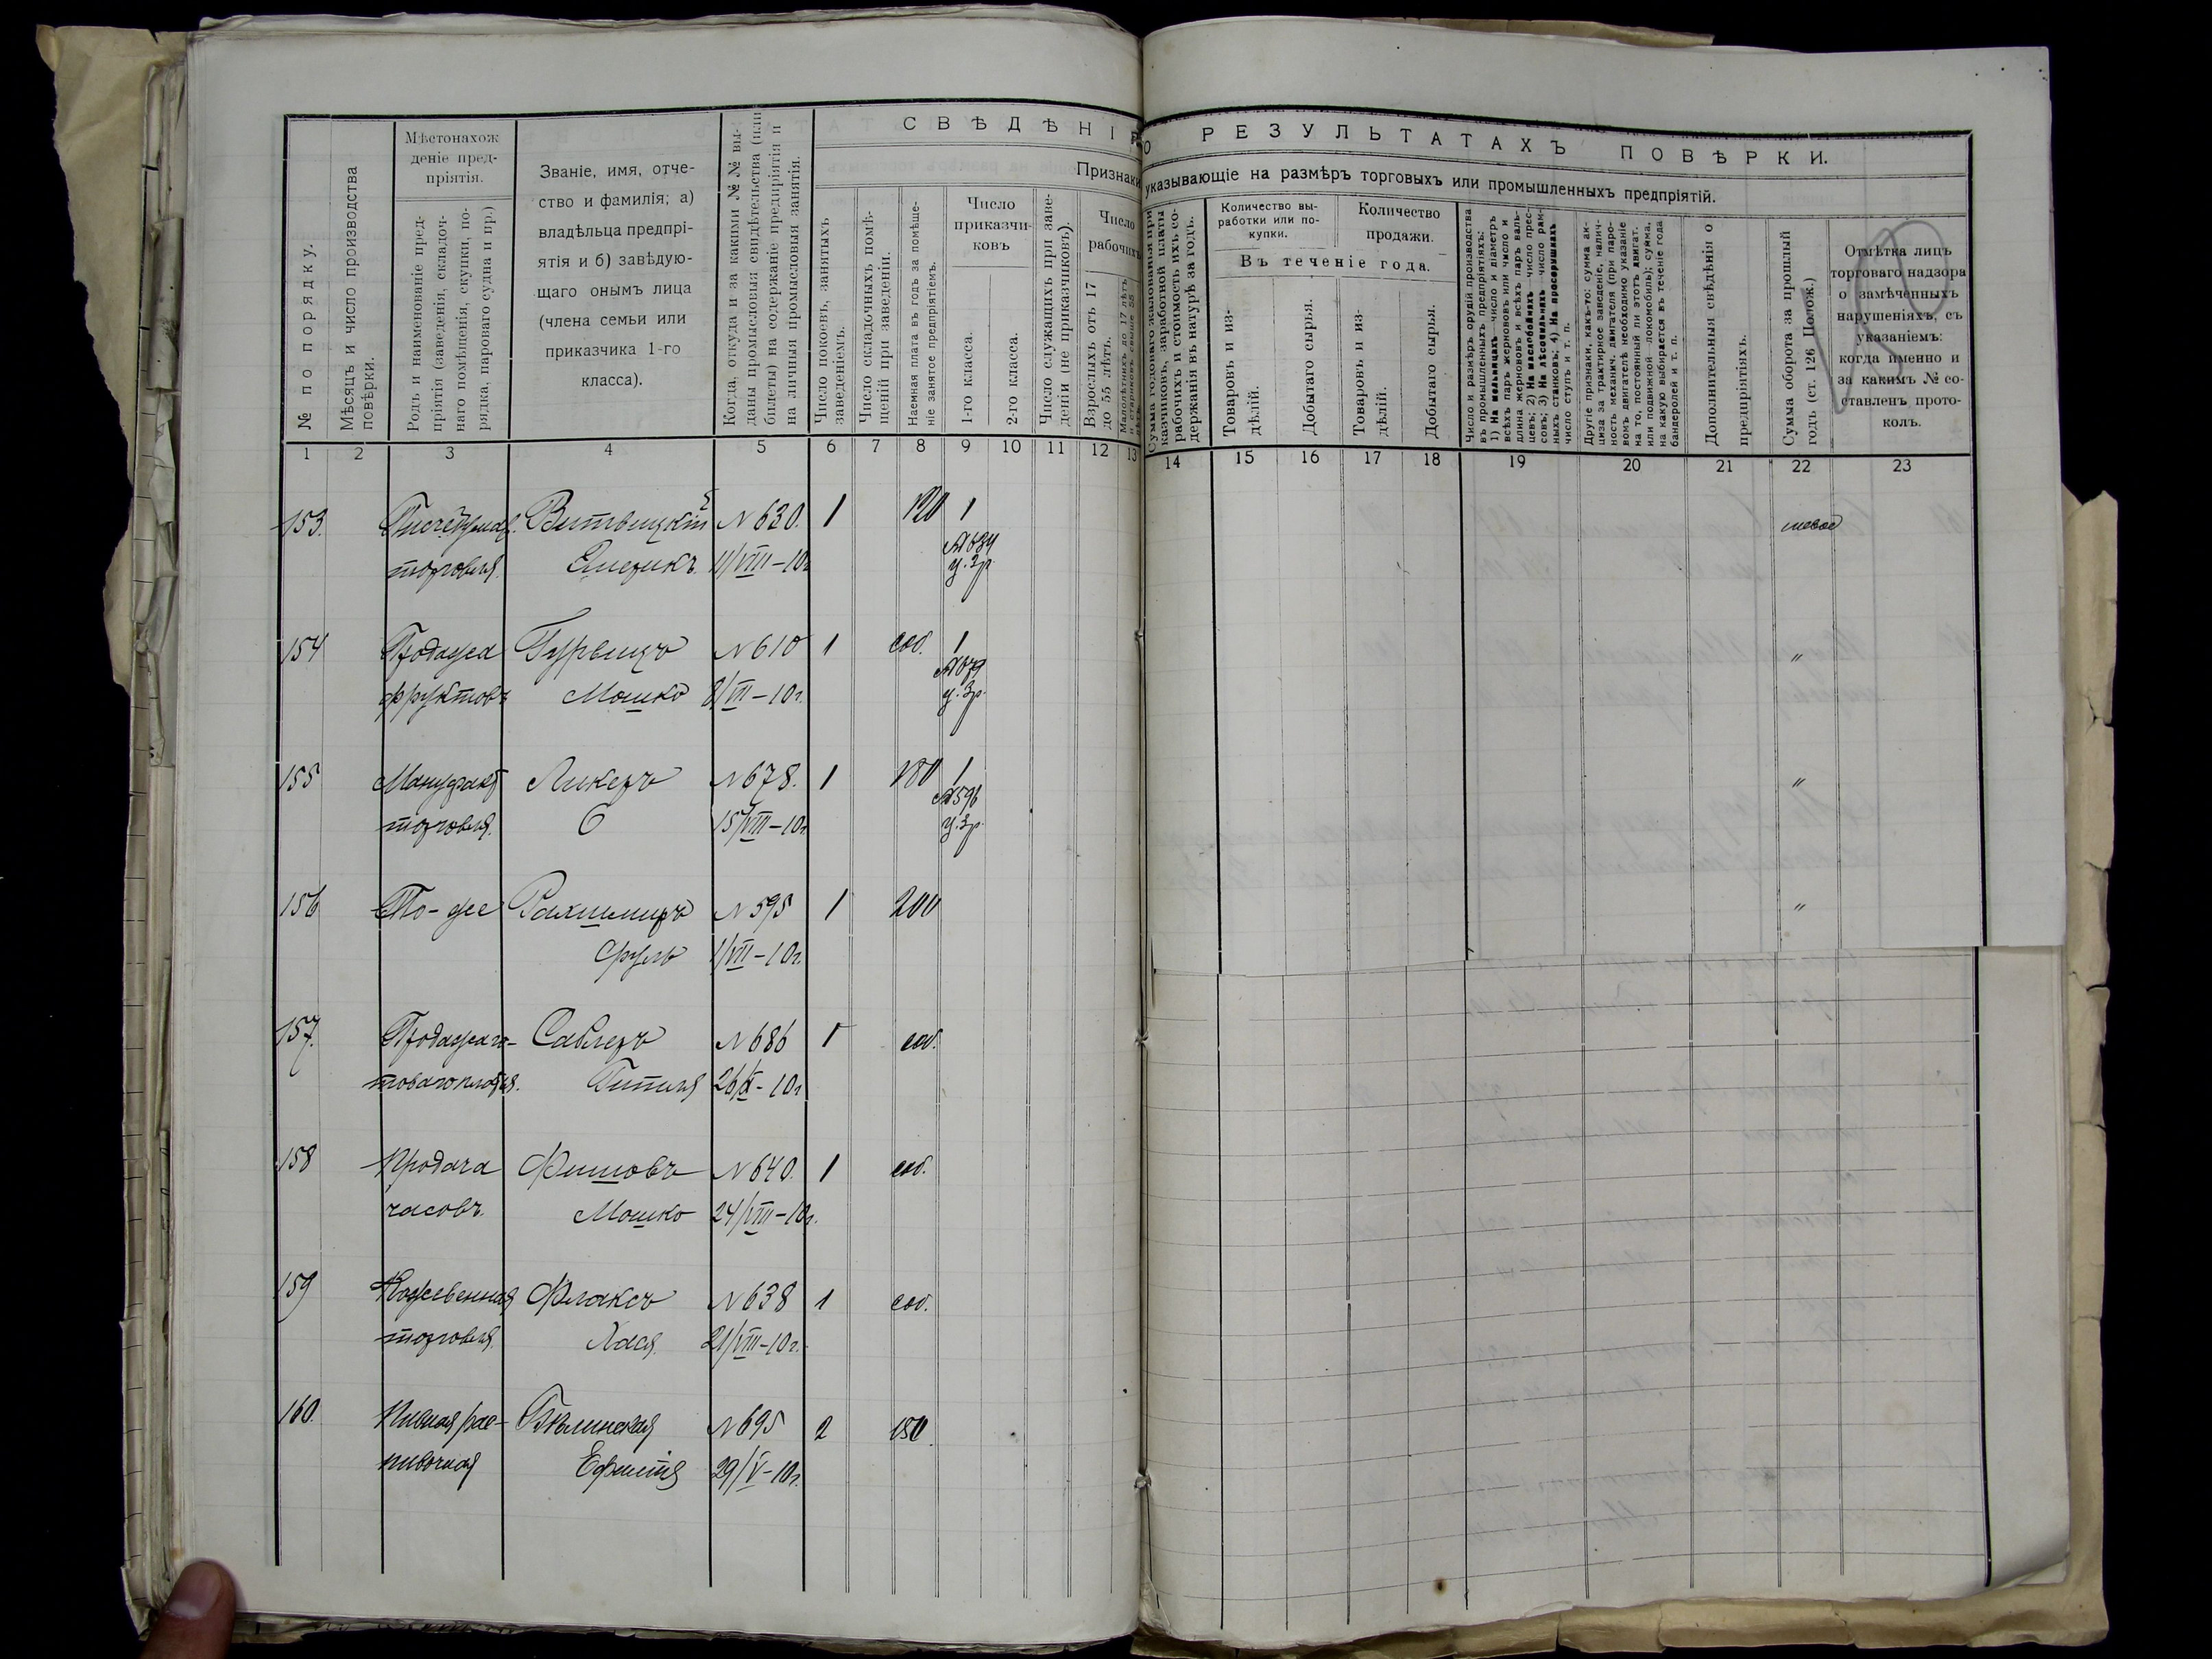 СВѢДѢНІЯ О РЕЗУЛЬТАТАХЪ ПОВѢРКИ.
Признаки, указывающіе на размѣръ торговыхъ или промышленныхъ предпріятій.
№ по порядку.
Мѣсяцъ и число производства
повѣрки.
Мѣстонахож
деніе пред-
пріятія.
Родъ и наименованіе пред-
пріятія (заведенія, складоч-
наго помѣщенія, скупки, по-
рядка, парового судна и пр.)
Званіе, имя, отче-
ство и фамилія; а)
владѣльца предпрі-
ятія и б) завѣдую-
щаго онымъ лица
(члена семьи или
приказчика 1-го
класса).
Когда, откуда и за какими №№ вы-
даны промысловыя свидѣтельства (или
билеты) на содержаніе предпріятія и
на личныя промысловыя занятія.
Число покоевъ, занятыхъ
заведеніемъ.
Число складочныхъ помѣ-
щеній при заведеніи.
Наемная плата въ годъ за помѣще-
ніе занятое предпріятіемъ.
Число
приказчи-
ковъ
1-го класса.
2-го класса.
Число служащихъ при заве-
деніи (не приказчиковъ).
Число
рабочихъ
Взрослыхъ отъ 17
до 55 лѣтъ.
Малолѣтнихъ до 17 лѣтъ
и стариковъ свыше 55
Сумма годоваго жалованья при-
казчиковъ, заработной платы
рабочихъ и стоимость ихъ со-
держанія въ натурѣ за годъ.
Количество вы-
работки или по-
купки.
Количество
продажи.
Въ теченіе года.
Товаровъ и из-
дѣлій.
Добытаго сырья.
Товаровъ и из-
дѣлій.
Добытаго сырья.
Число и размѣръ орудій производства
въ промышленныхъ предпріятіяхъ:
1) На мельницахъ число и діаметръ
всѣхъ паръ жерновъ или число и
длина жерновъ и всѣхъ паръ валь-
цевъ; 2) На маслобойняхъ число прес-
совъ; 3) На лѣсопильняхъ число рам-
ныхъ станковъ; 4) На просорушкахъ
число ступъ и т. п.
Другіе признаки, какъ-то: сумма ак-
циза за трактирное заведеніе, налич-
ность механич. двигателя (при паро-
вомъ двигателѣ необходимо указаніе
на то, постоянный ли этотъ двигат.
или подвижной - локомобиль); сумма,
на какую выбирается въ теченіе года
бандеролей и т. п.
Дополнительныя свѣдѣнія о
предпріятіяхъ.
Сумма оборота за прошлый
годъ (ст. 126 Полож.)
Отмѣтка лицъ
торговаго надзора
о замѣченныхъ
нарушеніяхъ, съ
указаніемъ:
когда именно и
за какимъ № со-
ставленъ прото-
колъ.
1 2 3 4 5 6 7 8 9 10 11 12 13 14 15 16 17 18 19 20 21 22 23
153. Витвицкій N 630. 1 120 1 новое
торговля. 11/VIII-10г N 634
у. 3р.
154 Продажа Гурвицъ N 610 1 соб. 1 "
фруктовъ Мошко 8/VII-10г. у. 3р.
155 Мануфакт Ликеръ N 678. 1 180 1 "
торговля. 15/VIII-10г N 596 у. 3р.
156 То-же N 595 1 200 "
1/VII-10г.
157. Продажа го- Саблеръ N 686 1 соб.
товаго платья. 26/X-10г
158 Продажа Фишовъ N 640. 1 соб.
часовъ. Мошко 24/VIII-10г.
159 Кожевенная Флаксъ N 638 1 соб.
торговля. Хася. 21/VIII-10г.
160. Пивная рас- Бѣлинская N 695 2 150.
пивочная Ефимія 29/V-10г.